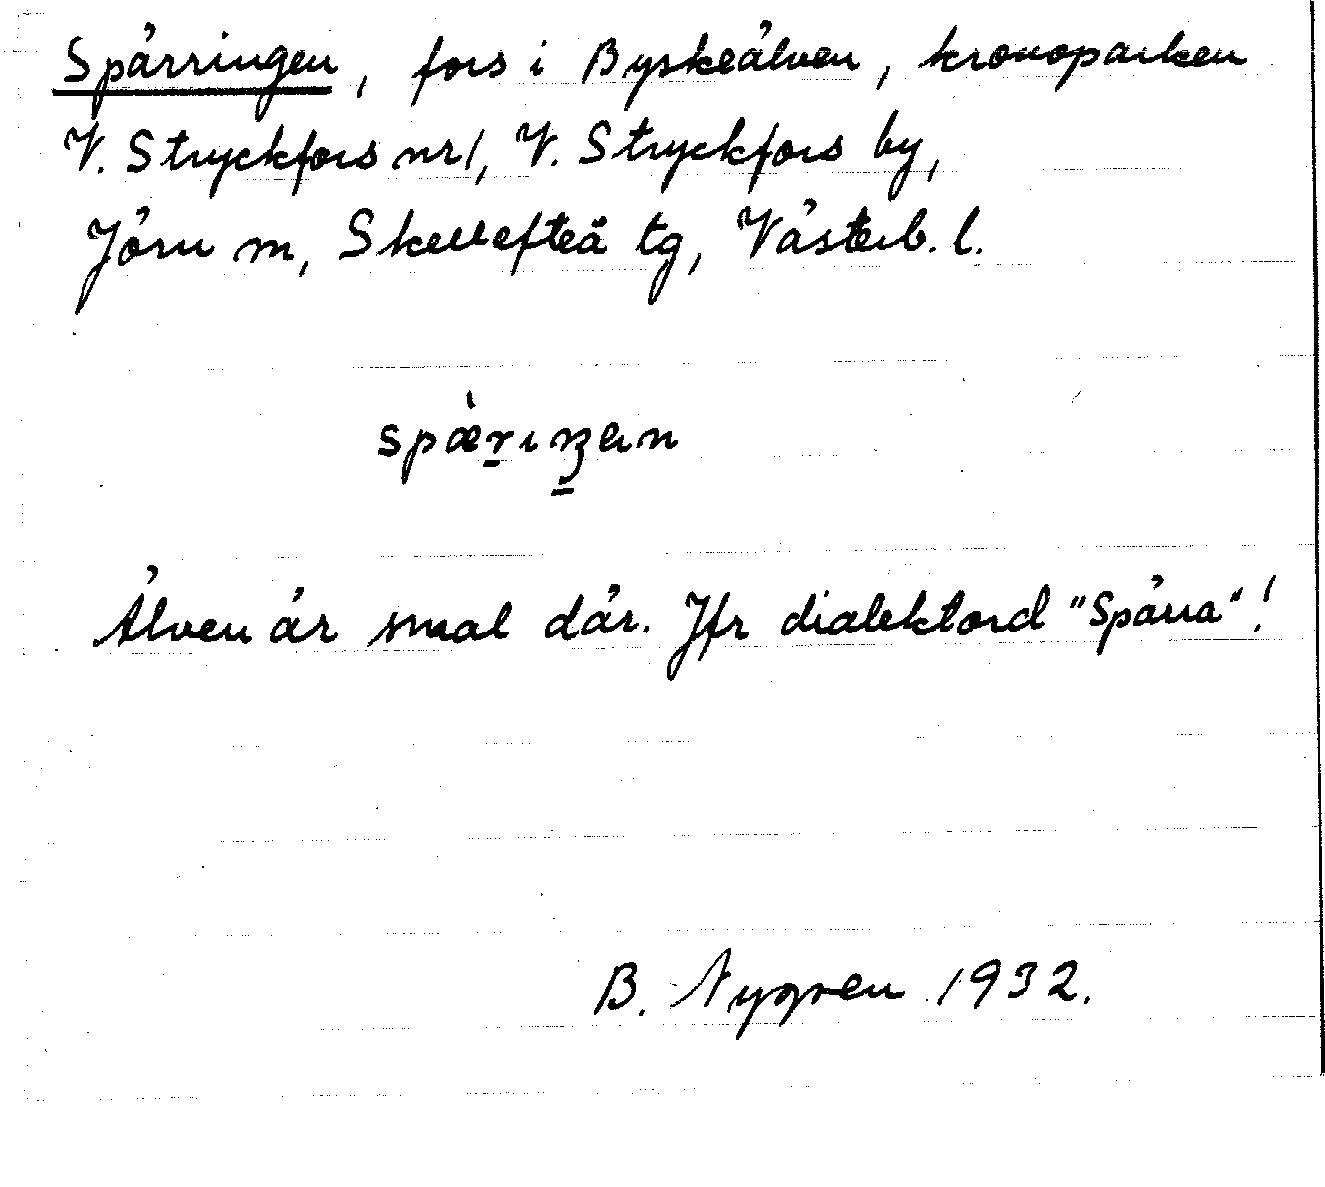 Spärringen, fors i Byskeälven, kronoparken
V. Stryckfors nr 1, V. Stryckfors by,
Jörn m, Skellefteå tg, Västerb. l.
Älven är smal där. Jfr dialektord "Spärra"!
B. Nygren 1932.